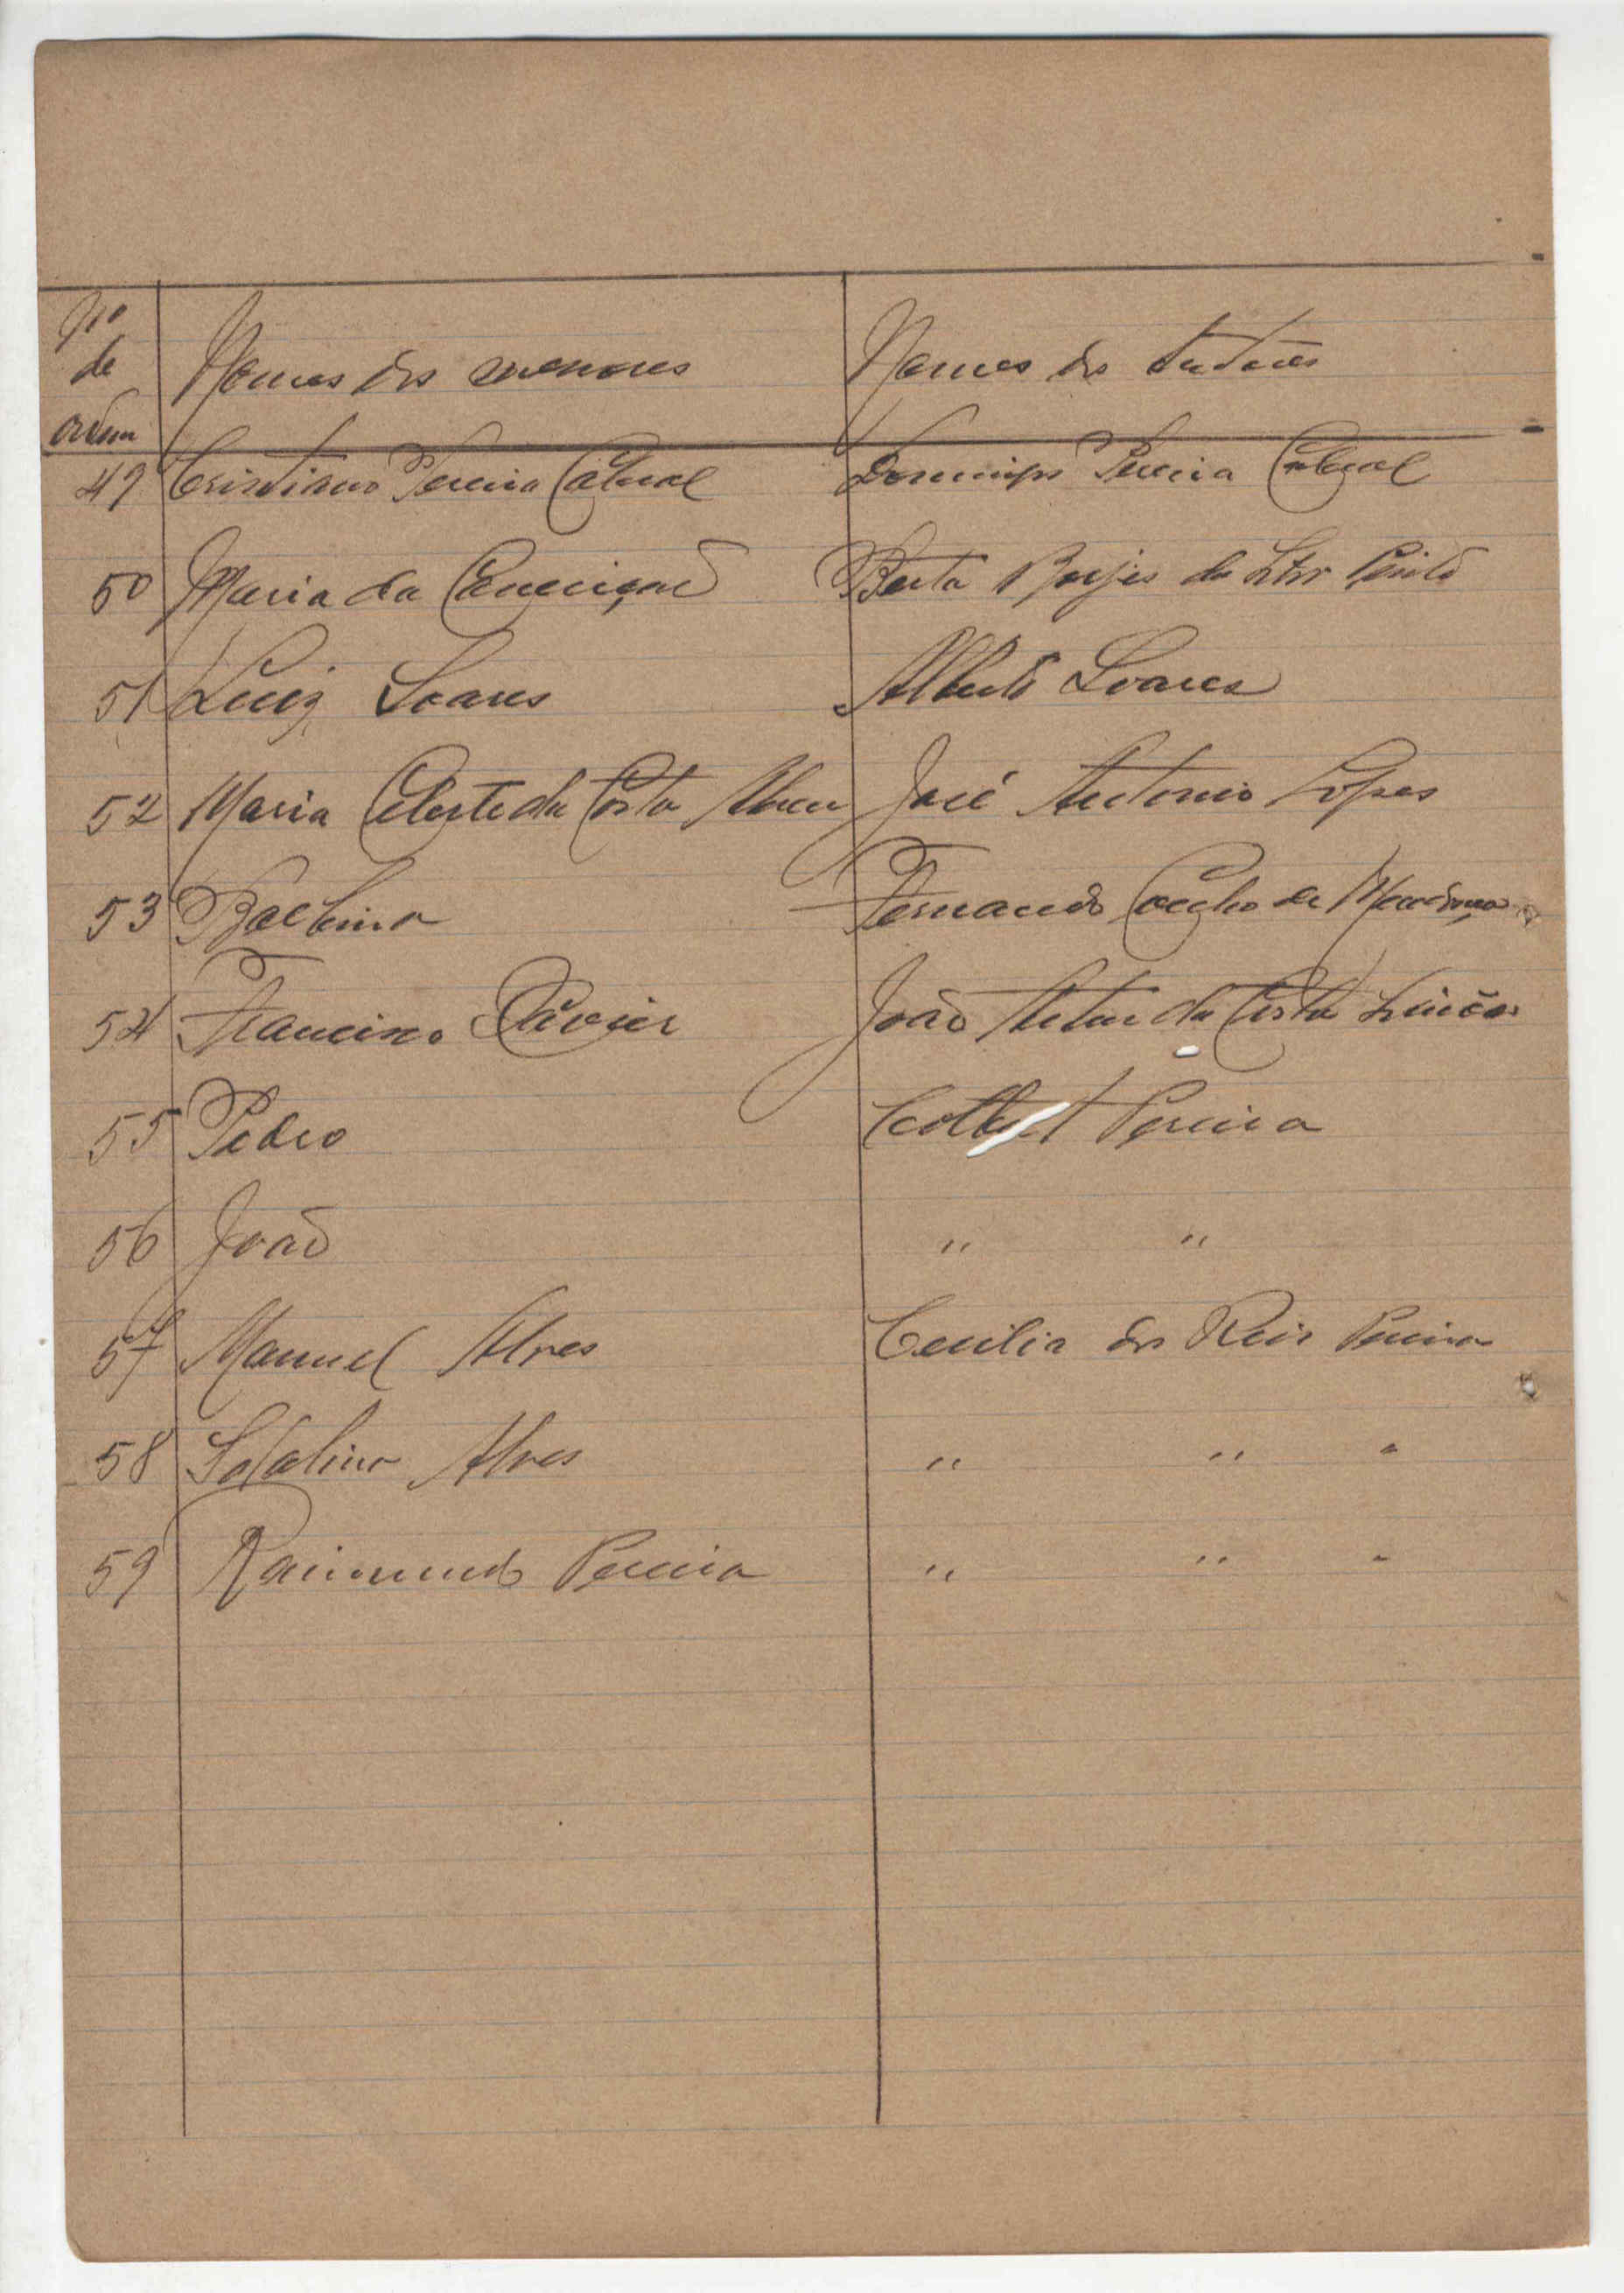 Nº de ordem Nomes dos menores Nomes dos tutores
49 Cristiano Pereira Cabral Domingos Pereira Cabral
50 Maria da Conceição Berta Borjes da Pinto
51 Luiz Soares Alberto Soares
52 Maria Celeste da Costa Abreu José Antonio Lopes
53 Balbina Fernando Coelho de Mendonça
54 Francisco Xavier João Artur da Costa
55 Pedro Colbert Pereira
56 João " "
57 Manuel Alves Cecilia dos Reis Pereira
58 Alves " " "
59 Raimundo Pereira " " "